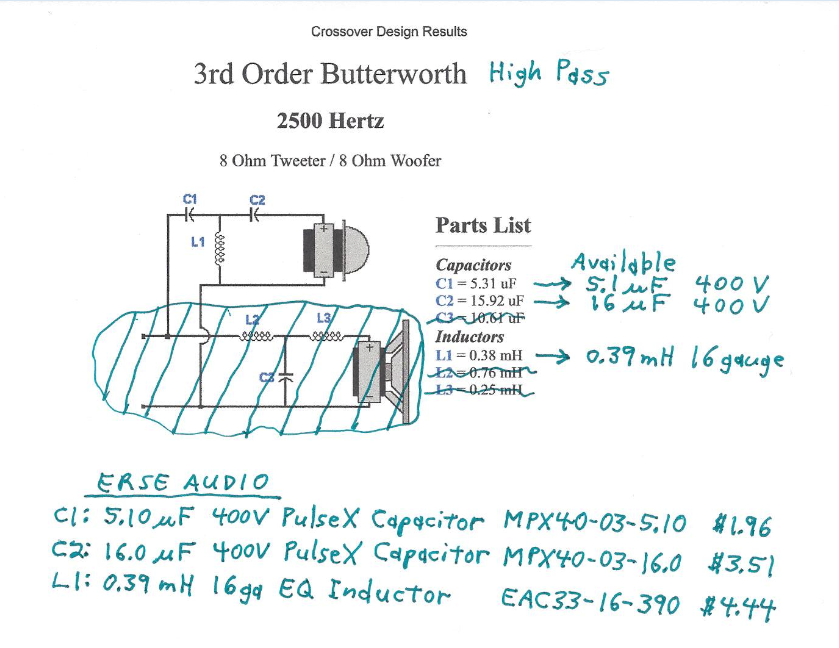 Crossover Design Results
3rd Order Butterworth High Pass
2500 Hertz
8 Ohm Tweeter / 8 Ohm Woofer
C1 C2
L1
L2 L3
C3
Parts List
Capacitors Available
C1 = 5.31 uF → 5.1 uF 400 V
C2 = 15.92 uF → 16 uF 400 V
C3 = 10.61 uF
Inductors
L1 = 0.38 mH → 0.39 mH 16 gauge
L2 = 0.76 mH
L3 = 0.25 mH
ERSE AUDIO
C1: 5.10 uF 400V PulseX Capacitor MPX40-03-5.10 $1.96
C2: 16.0 uF 400V PulseX Capacitor MPX40-03-16.0 $3.51
L1: 0.39 mH 16ga EQ Inductor EAC33-16-390 $4.44